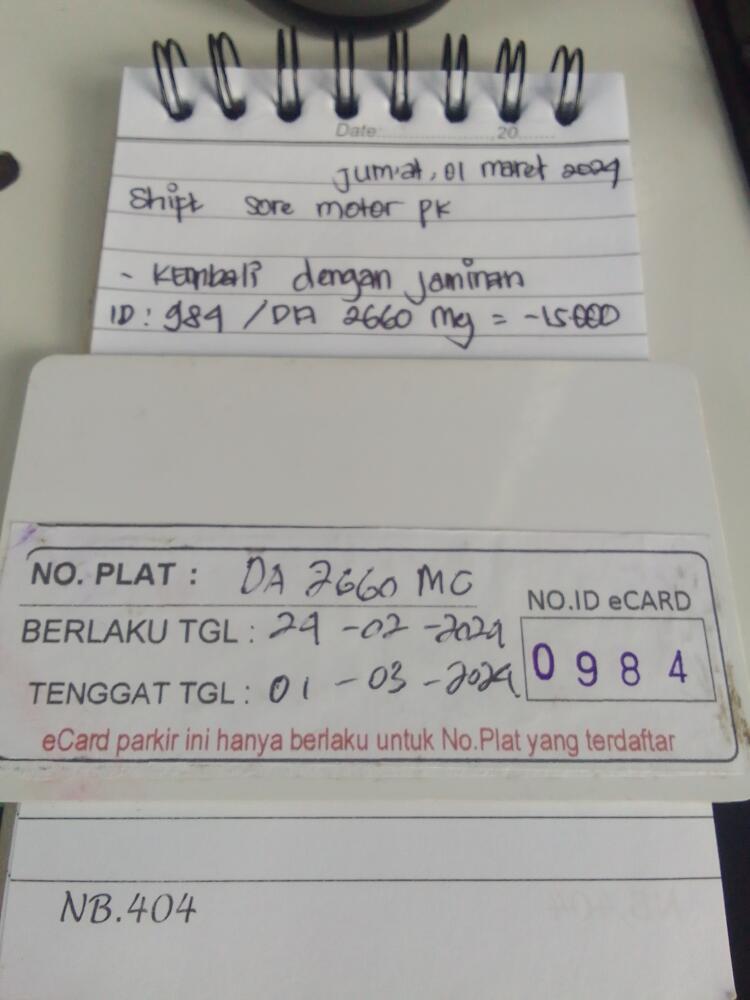 Date:....................,20.......
Jum'at, 01 maret 2024
Shift sore motor pk
- Kembali dengan jaminan
ID: 984 / DA 2660 mg = -15.000
NO. PLAT : DA 2660 MG
BERLAKU TGL : 24 -02 -2024
TENGGAT TGL : 01 - 03 - 2024
NO.ID eCARD
0984
eCard parkir ini hanya berlaku untuk No.Plat yang terdaftar
NB.404